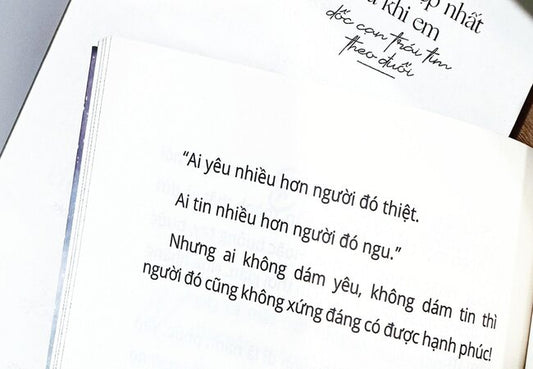 nhất
khi em
dốc cạn trái tim
theo đuổi
“Ai yêu nhiều hơn người đó thiệt.
Ai tin nhiều hơn người đó ngu.”
Nhưng ai không dám yêu, không dám tin thì
người đó cũng không xứng đáng có được hạnh phúc!